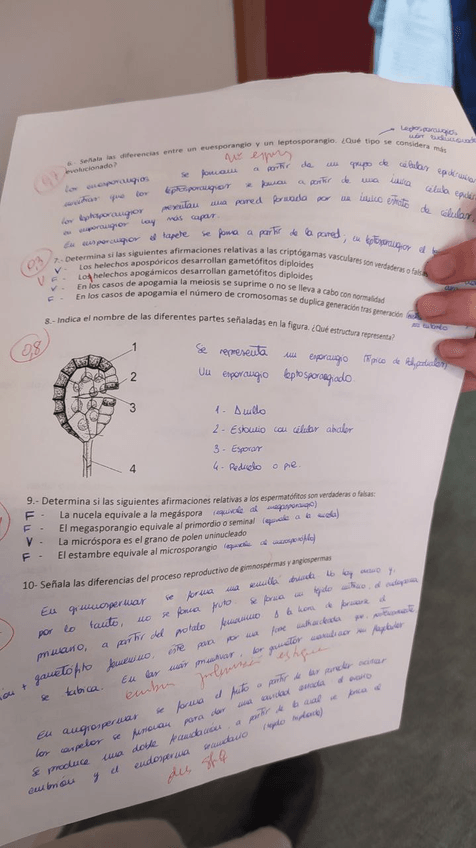 Leptosporangios
6.- Señala las diferencias entre un euesporangio y un leptosporangio. ¿Qué tipo se considera más
evolucionado?
Los euesporangios se forman a partir de un grupo de células
mientras que los leptosporangios se forman a partir de una única célula
Los leptosporangios presentan una pared formada por un único estrato de células,
en euesporangios hay más capas.
En euesporangios el tapete se forma a partir de la pared, en leptosporangios el
0,3
7.- Determina si las siguientes afirmaciones relativas a las criptógamas vasculares son verdaderas o falsas
V - Los helechos apospóricos desarrollan gametófitos diploides
V F - Los helechos apogámicos desarrollan gametófitos diploides
V - En los casos de apogamia la meiosis se suprime o no se lleva a cabo con normalidad
F - En los casos de apogamia el número de cromosomas se duplica generación tras generación
8.- Indica el nombre de las diferentes partes señaladas en la figura. ¿Qué estructura representa?
0,8
Se representa un esporangio típico de
Un esporangio leptosporangiado.
1
2
3
4
1 - Anillo
2 - Estomio con células
3 - Esporas
4 - Pedicelo o pie.
9.- Determina si las siguientes afirmaciones relativas a los espermatófitos son verdaderas o falsas:
F - La nucela equivale a la megáspora (equivale al megasporangio)
F - El megasporangio equivale al primordio o seminal (equivale a la nucela)
V - La micróspora es el grano de polen uninucleado
F - El estambre equivale al microsporangio (equivale al microsporofilo)
10- Señala las diferencias del proceso reproductivo de gimnospermas y angiospermas
En gimnospermas se forma una semilla desnuda. No hay ovario y,
por lo tanto, no se forma fruto. Se forma un tejido nutricio, el endosperma
primario, a partir del protalo femenino. A la hora de formarse el
gametófito femenino, este pasa por una fase
se tabica. En las más primitivas, los gametos masculinos son flagelados
En angiospermas se forma el fruto a partir de las paredes ováricas
los carpelos se fusionan para dar una cavidad cerrada, el ovario
Se produce una doble fecundación, a partir de la cual se forma el
embrión y el endosperma secundario (tejido triploide)